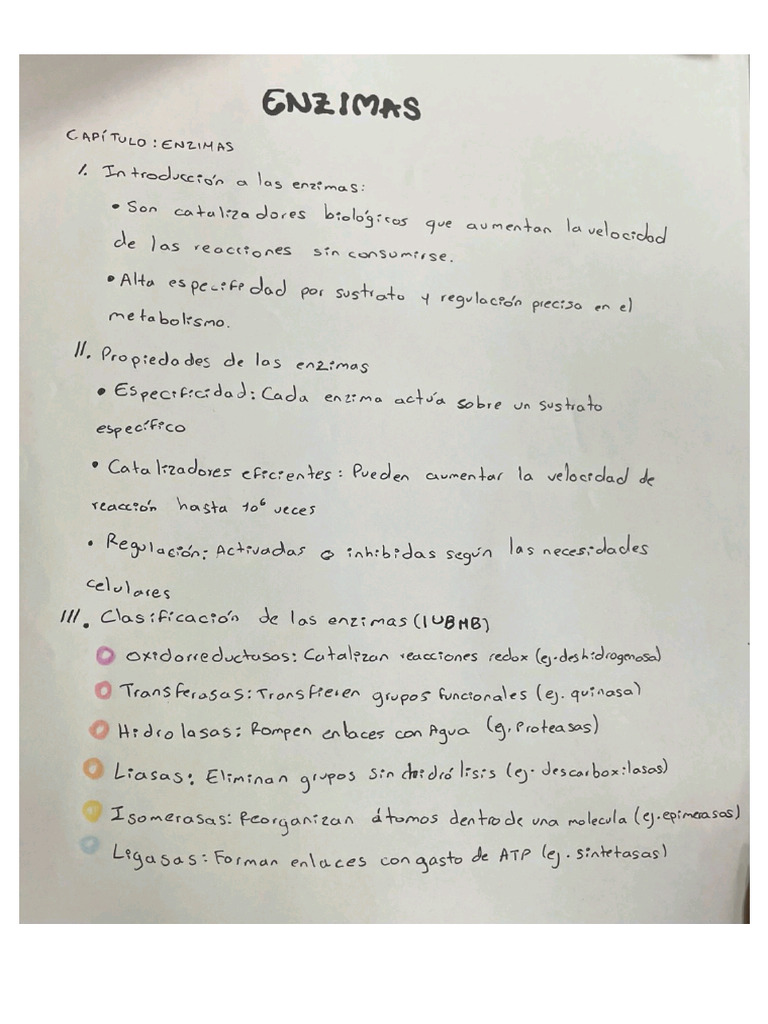 ENZIMAS
CAPÍTULO: ENZIMAS
I. Introducción a las enzimas:
• Son catalizadores biológicos que aumentan la velocidad
de las reacciones sin consumirse.
• Alta especifedad por sustrato y regulación precisa en el
metabolismo.
II. Propiedades de las enzimas
• Especificidad: Cada enzima actúa sobre un sustrato
específico
• Catalizadores eficientes: Pueden aumentar la velocidad de
reacción hasta 10⁶ veces
• Regulación: Activadas o inhibidas según las necesidades
celulares
III. Clasificación de las enzimas (IUBMB)
Oxidorreductasas: Catalizan reacciones redox (ej. deshidrogenasa)
Transferasas: Transfieren grupos funcionales (ej. quinasa)
Hidrolasas: Rompen enlaces con Agua (ej. Proteasas)
Liasas: Eliminan grupos sin hidrólisis (ej. descarboxilasas)
Isomerasas: Reorganizan átomos dentro de una molecula (ej. epimerasas)
Ligasas: Forman enlaces con gasto de ATP (ej. sintetasas)